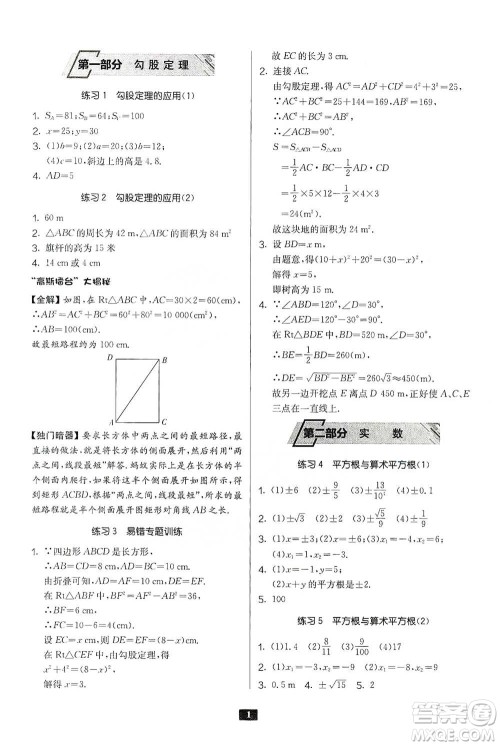 第一部分 勾股定理
练习1 勾股定理的应用(1)
1. S_A=81;S_B=64;S_C=17.
2. x=25;y=
3. (1)b=9;(2)a=20;(3)b=12;
(4)c=10,斜边上的高是4.8.
4. AD=5
练习2 勾股定理的应用(2)
1. 60 m
2. △ABC的周长为42 m,△ABC的面积为84 m²
3. 旗杆的高为15米
4. 14 cm或4 cm
“高斯擂台”大揭秘
【全解】如图,在Rt△ABC中,AC=30×2=60(cm).
∴AB²=AC²+BC²=60²+80²=10000
∴AB=100(cm).
故最短路程约为100 cm.
D B
A C
【独门暗器】要求长方体中两点之间的最短路径,根据
“两点之间,线段最短”解答.蚂蚁实际上是在长方体的
半个侧面内爬行,如果将这半个侧面展开
得到矩形ACBD,根据“两点之间,线段最短”所求的最
短路程就是半个侧面展开图矩形对角线AB的长.
练习3 易错专题训练
1. ∵四边形ABCD是长方形,
∴DC=AB=8(cm);
由折叠可知:AD=AF=10(cm),DE=EF=x;
在Rt△ABF中,由勾股定理得:
BF=6(cm),
∴FC=10-6=4(cm);
设EC=x(cm),则EF=DE=(8-x)cm;
在Rt△CEF中,由勾股定理得:
x²+4²=(8-x)²,
解得:x=3(cm),
故EC的长为3 cm.
2. 连接AC.
由勾股定理可知:
∵AC²+BC²=25+144=169,
又∵AC²+BC²=AB²
∴∠ACB=90°
S=S△ABC-S△ACD
=1/2 AC·BC-1/2 AD·CD
=1/2×5×12-1/2×4×3
=24(m²)
故这块地的面积为24 m².
3. 设BD=x米,
由题意,得(10+x)²+20²=(30-x)²,
解得:x=5
即树高为15米.
4. ∵∠ABD=120°,∴∠EBD=60°.
∵∠D=30°,∴∠E=90°.
∴在Rt△BDE中,BD=520 m,∠D=30°
∴BE=1/2BD=260(m).
∴DE=√BD²-BE²≈450(m).
故另一边开挖点E离D 450 m,正好使A、C、E
三点在一直线上.
第二部分 实数
练习4 平方根与算术平方根(1)
1. (1)±6 (2)±3/4 (3)±13 (4)±5/9
2. (1)±0.9 (2)±13
3. (1)x₁=4,x₂=-2
(2)x+y的平方根为±
5. 100
练习5 平方根与算术平方根(2)
1. (1)1.4 (2)8/11 (3)9/100 (4)17
2. (1)x₁=-5,x₂=-9 (2)x₁=5,x₂=-1
3. 0.5 m 4. ±√15 5. 2.
1
答案圈
MXQE.COM